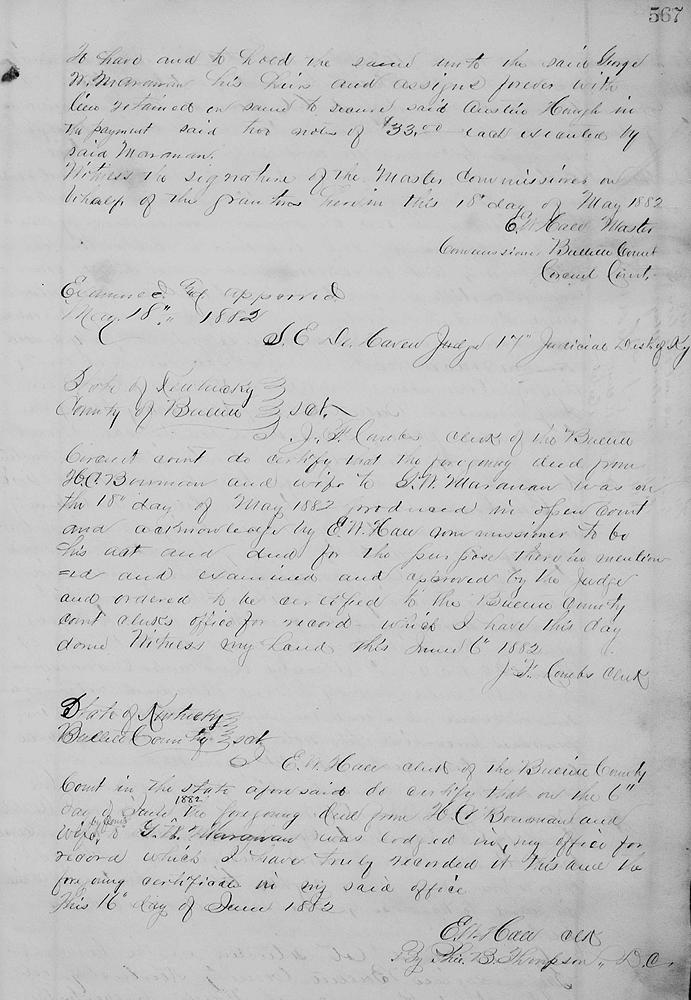 567
To have and to hold the same unto the said George
W. Maraman his heirs and assigns forever with
lien retained on same to secure said Austin Hough in
the payment said two notes of $33.00 each executed by
said Maraman.
Witness the signature of the Master Commissioner on
behalf of the grantors herein this 18" day of May 1882
E. W. Hall Master
Commissioner Bullitt Count
Circuit Court.
Examined & approved
May. 18"" 1882
S. E. De. Haven Judge 17" Judicial Dist of Ky
State of Kentucky
County of Bullitt sct
J. F. Combs clerk of the Bullitt
Circuit court do certify that the foregoing deed from
H. C. Bowman and wife to G. W. Maraman was on
the 18" day of May 1882 produced in open court
and acknowledge by E. W. Hall commissioner to be
his act and deed for the purpose therein mention
=ed and examined and approved by the Judge
and ordered to be certified to the Bullitt County
court clerks office for record which I have this day
done Witness my hand this June 6" 1882
J. F. Combs clerk
State of Kentucky
Bullitt County sct
E. W. Hall clerk of the Bullitt County
Court in the state aforesaid do certify that on the 6"
day of June 1882 the foregoing deed from H. C. Bowman and
wife by Coms to G. W. Maraman was lodged in my office for
record which I have truly recorded it this and the
foregoing certificate in my said office
This 16" day of June 1882
E. W. Hall clk
By Phil. B. Thompson, D. C.